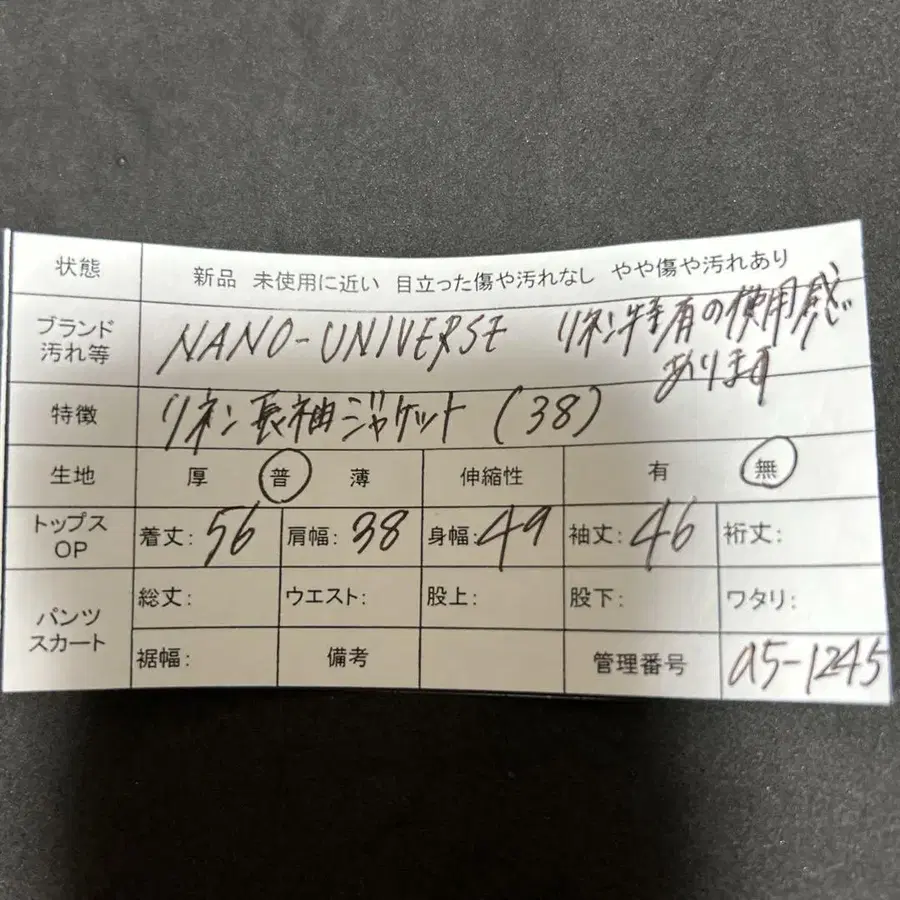 状態 新品 未使用に近い 目立った傷や汚れなし やや傷や汚れあり
ブランド 汚れ等 NANO-UNIVERSE リネン特有の使用感
あります
特徴 リネン長袖ジャケット (38)
生地 厚 普 薄 伸縮性 有 無
トップス OP 着丈: 56 肩幅: 38 身幅: 49 袖丈: 46 裄丈:
パンツ スカート 総丈: ウエスト: 股上: 股下: ワタリ:
裾幅: 備考 管理番号 a5-1245